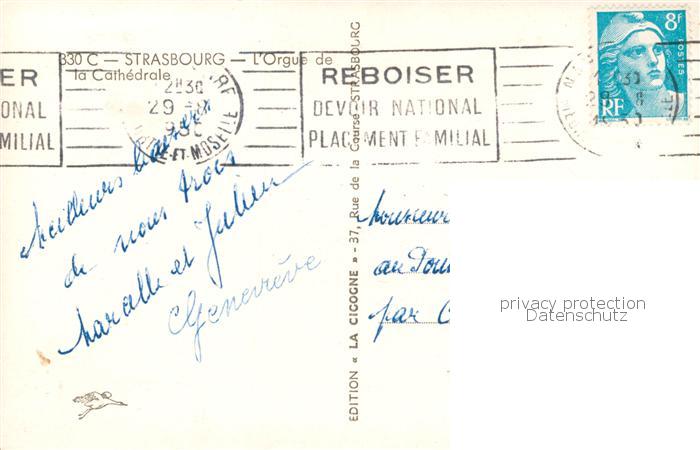 330 C — STRASBOURG — L'Orgue de
la Cathédrale
ER
ONAL
MILIAL
21H30
29
RE
ET-MOSELLE
REBOISER
DEVOIR NATIONAL
PLACEMENT FAMILIAL
8F
POSTES
RF
Meilleurs baisers
de nous trois
Marcelle et Julien
Geneviève
EDITION « LA CICOGNE » - 37, Rue de la Course - STRASBOURG
Monsieur
au Dou
par C
privacy protection
Datenschutz